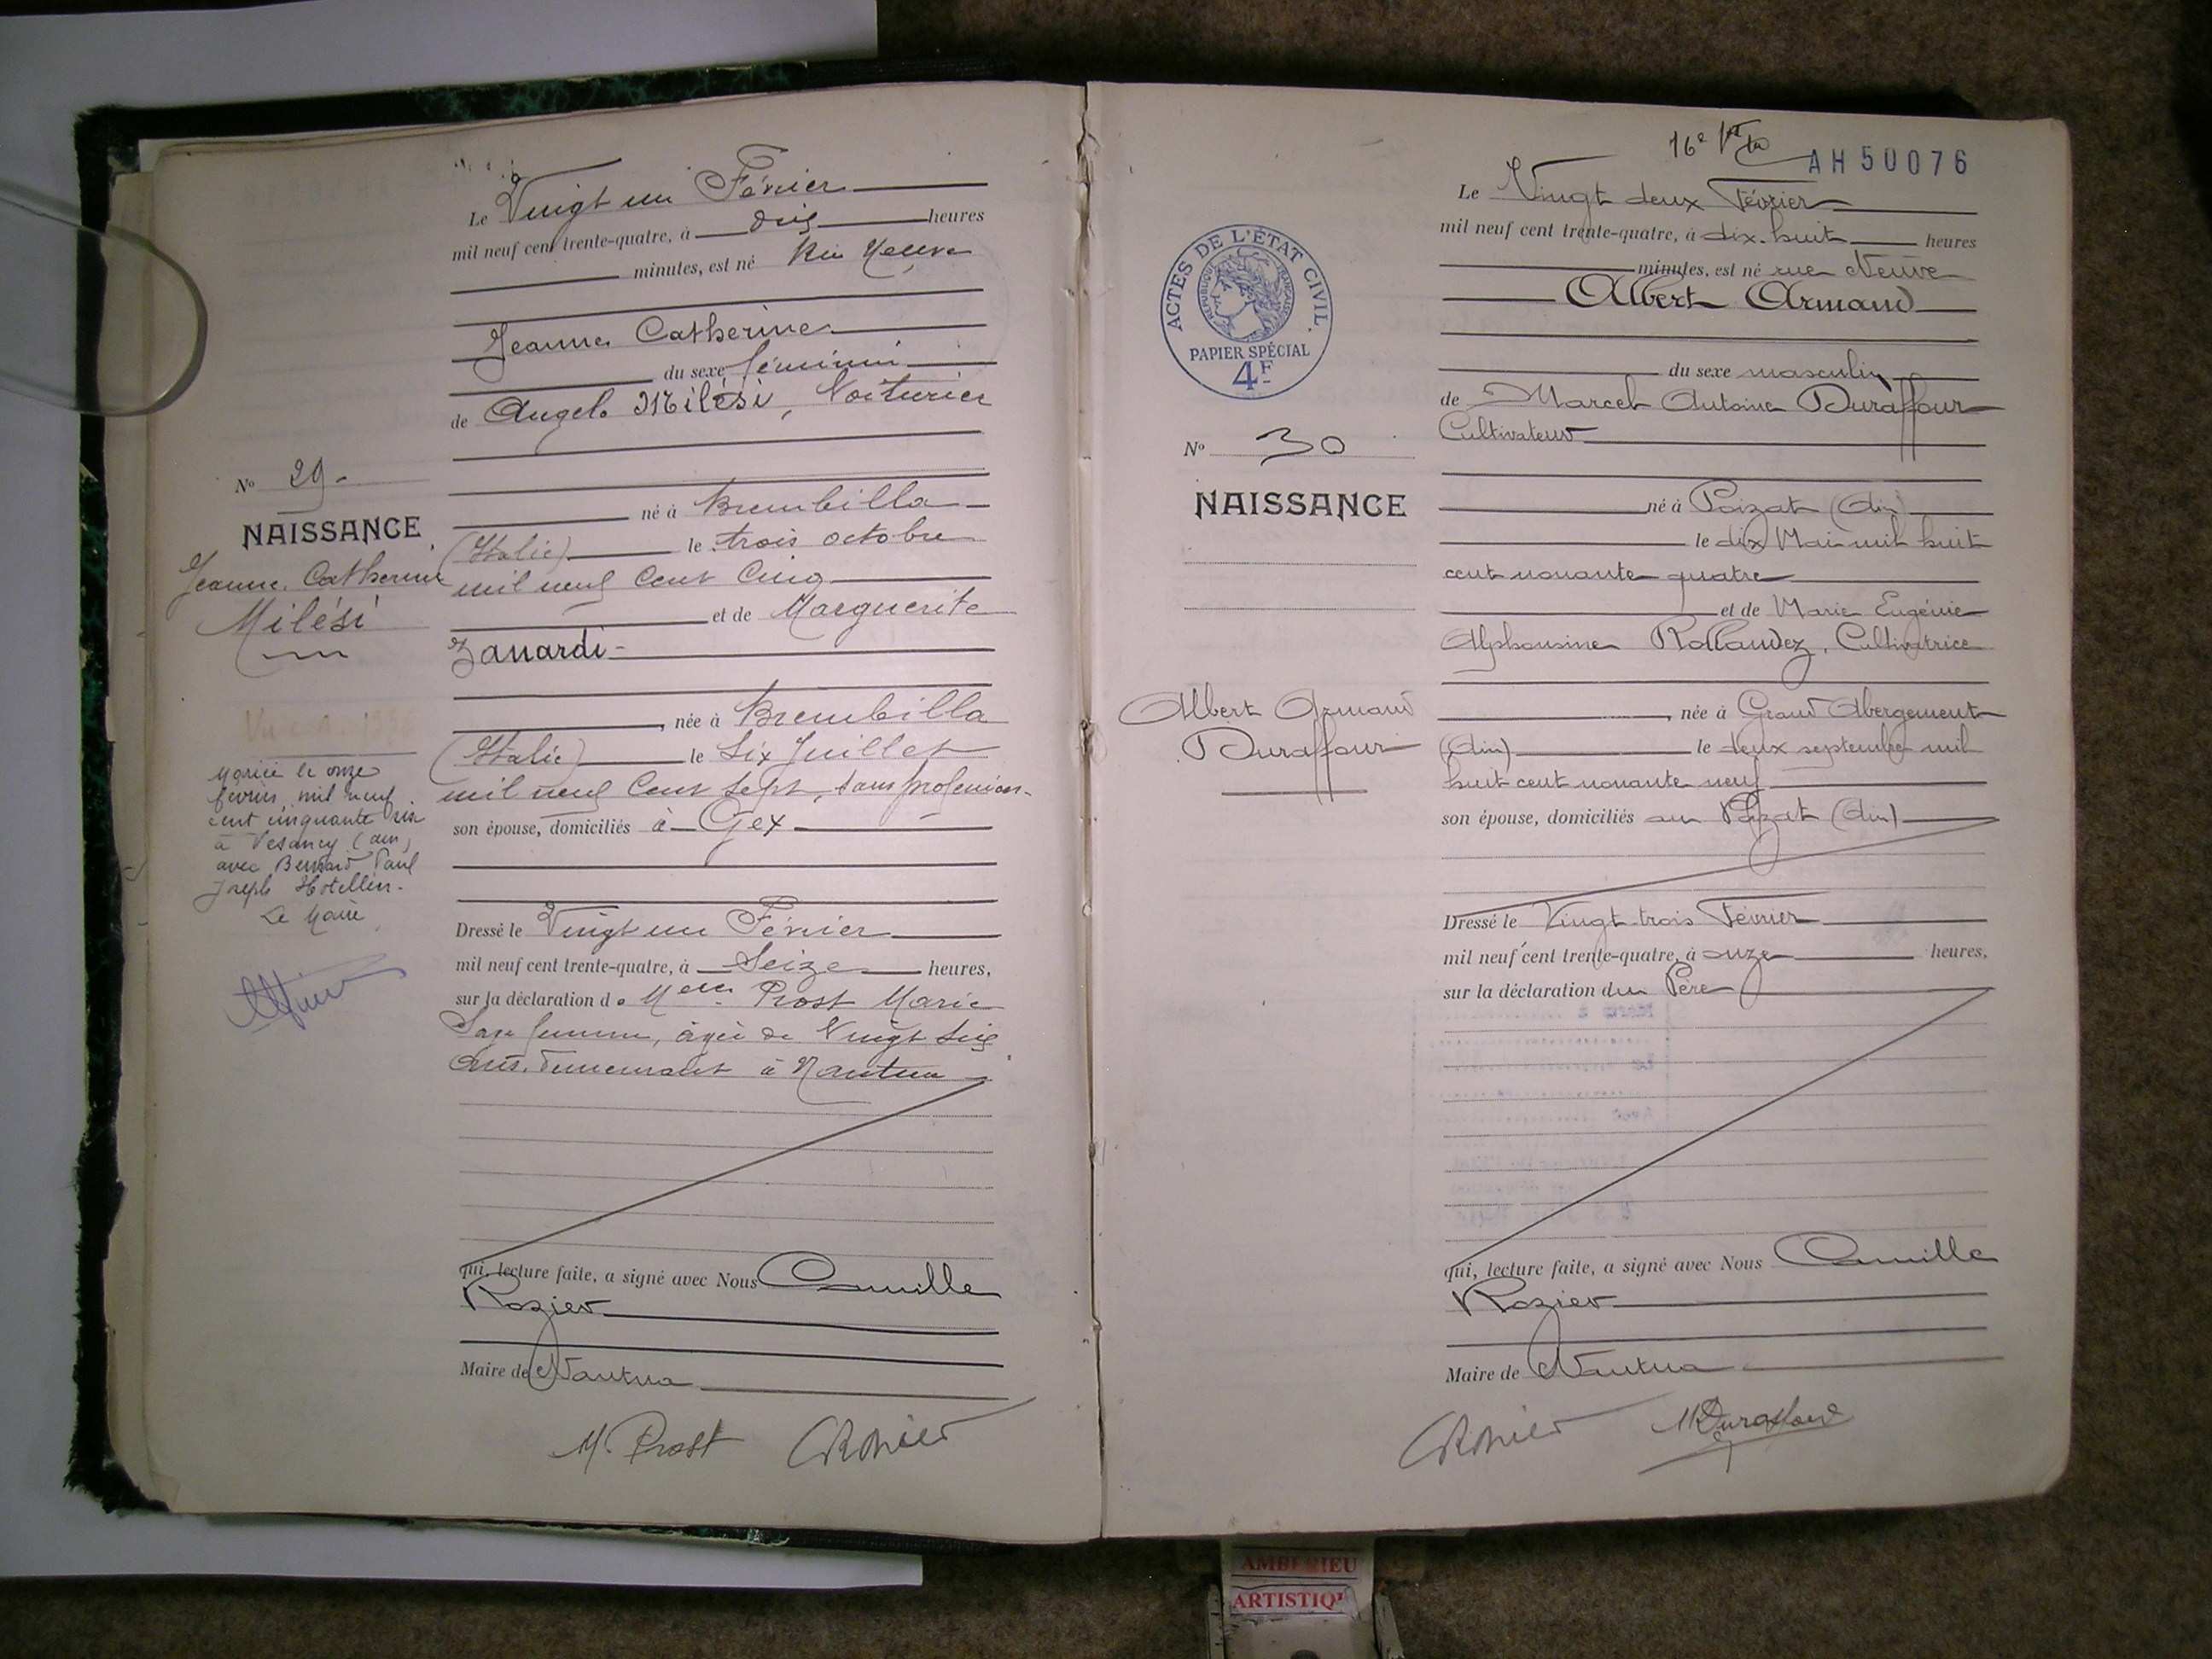 Le Vingt un Février
mil neuf cent trente-quatre, à dix heures
minutes, est né Rue Neuve
Jeanne Catherine
du sexe féminin
de Angelo Milési, Voiturier
No 29.
NAISSANCE
Jeanne Catherine
Milési
né à Brembilla
(Italie) le trois octobre
mil neuf Cent Cinq
et de Marguerite
Zanardi
, née à Brembilla
(Italie) le Six Juillet
mil neuf Cent Sept, sans profession.
son épouse, domiciliés à Gex
Mariée le onze
février mil neuf
cent cinquante six
à Vesancy (Ain)
avec Bernard Paul
Joseph Hotellier.
Le Maire
Dressé le Vingt un Février
mil neuf cent trente-quatre, à Seize heures,
sur la déclaration de Prost Marie
Sage femme, âgée de Vingt Six
ans, demeurant à Nantua
qui, lecture faite, a signé avec Nous Camille
Rozier
Maire de Nantua
M. Prost CRozier
16e
AH50076
Le Vingt deux Février
mil neuf cent trente-quatre, à dix-huit heures
minutes, est né rue Neuve
Albert Armand
ACTES DE L'ÉTAT CIVIL.
RÉPUBLIQUE FRANÇAISE
PAPIER SPÉCIAL
4F
du sexe masculin
de Marcel Antoine Duraffour
Cultivateur
No 30
NAISSANCE
Albert Armand
Duraffour
né à Poizat (Ain)
le dix Mai mil huit
cent nonante quatre
et de Marie Eugénie
Alphonsine Rollandez, Cultivatrice
, née à Grand Abergement
(Ain) le deux septembre mil
huit cent nonante neuf
son épouse, domiciliés au Poizat (Ain)
Dressé le Vingt-trois Février
mil neuf cent trente-quatre, à onze heures,
sur la déclaration du Père
qui, lecture faite, a signé avec Nous Camille
Rozier
Maire de Nantua
CRozier MDuraffour
AMBERIEU
ARTISTIQ